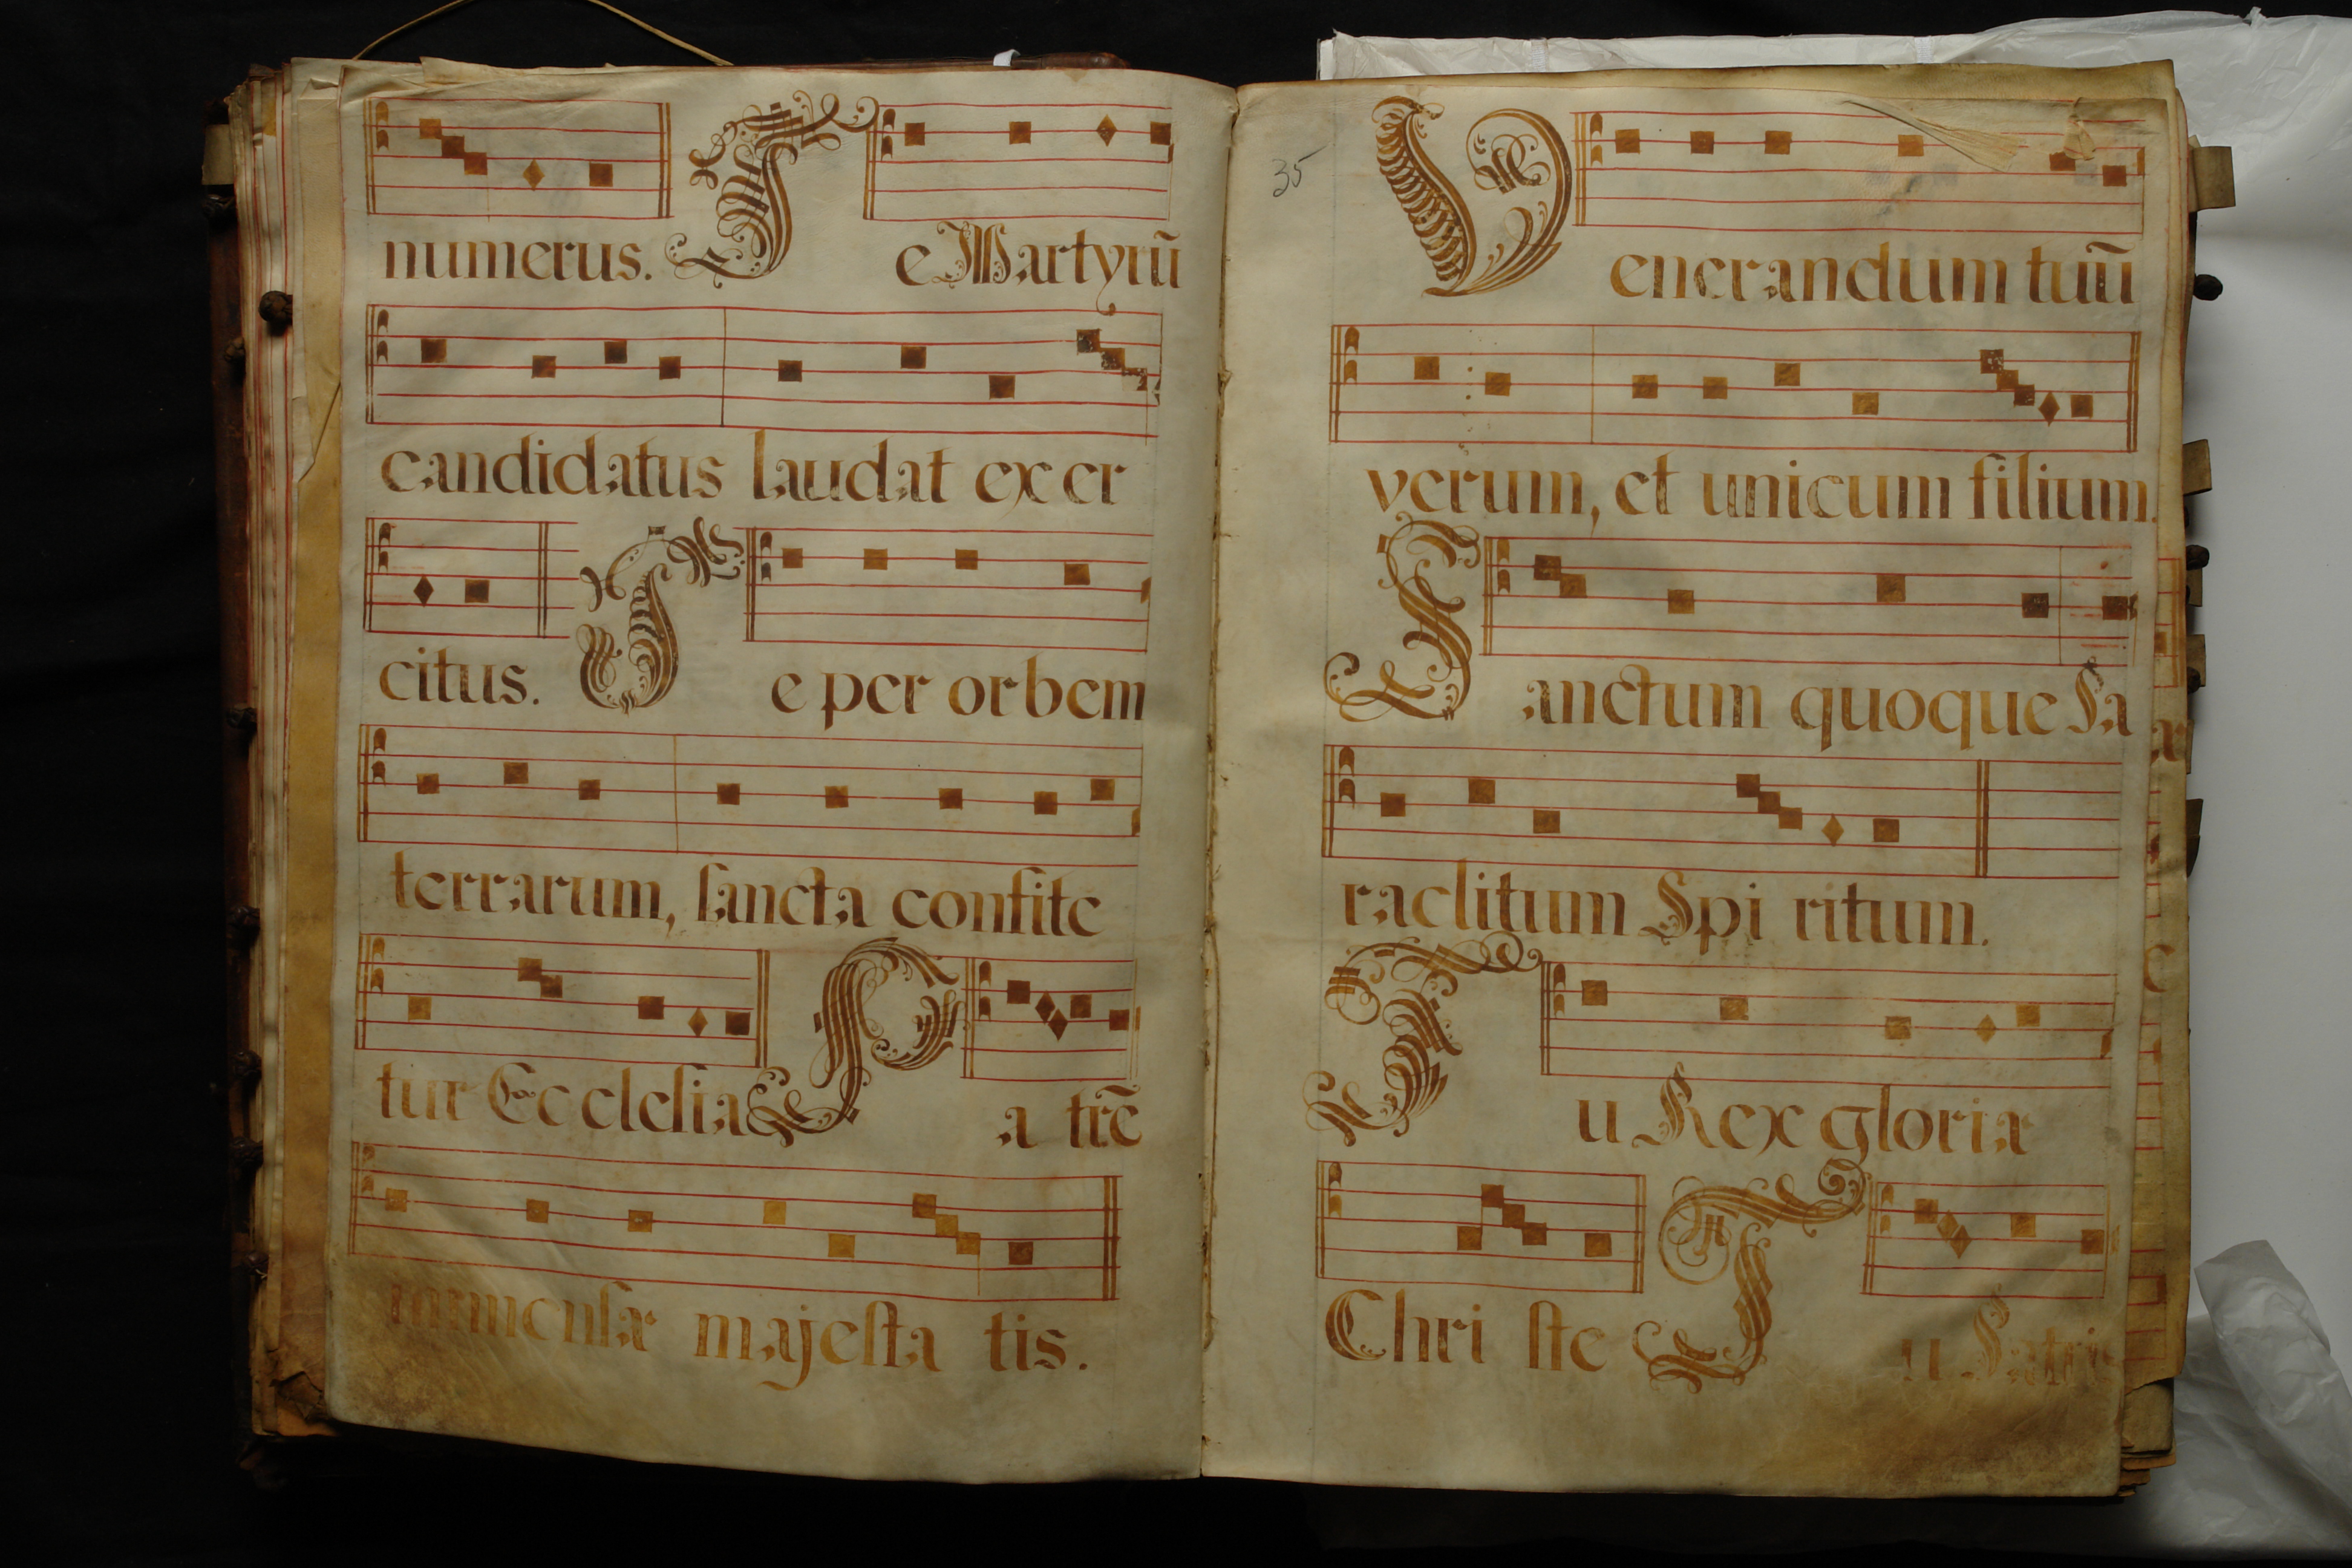 numerus. Te Martyrũ
candidatus laudat exer
citus. Te per orbem
terrarum, sancta confite
tur Ecclesia Pa trẽ
immensæ majesta tis.
35
Venerandum tuũ
verum, et unicum filium.
Sanctum quoque Pa
raclitum Spi ritum.
Tu Rex gloriæ
Chri ste Tu Patris